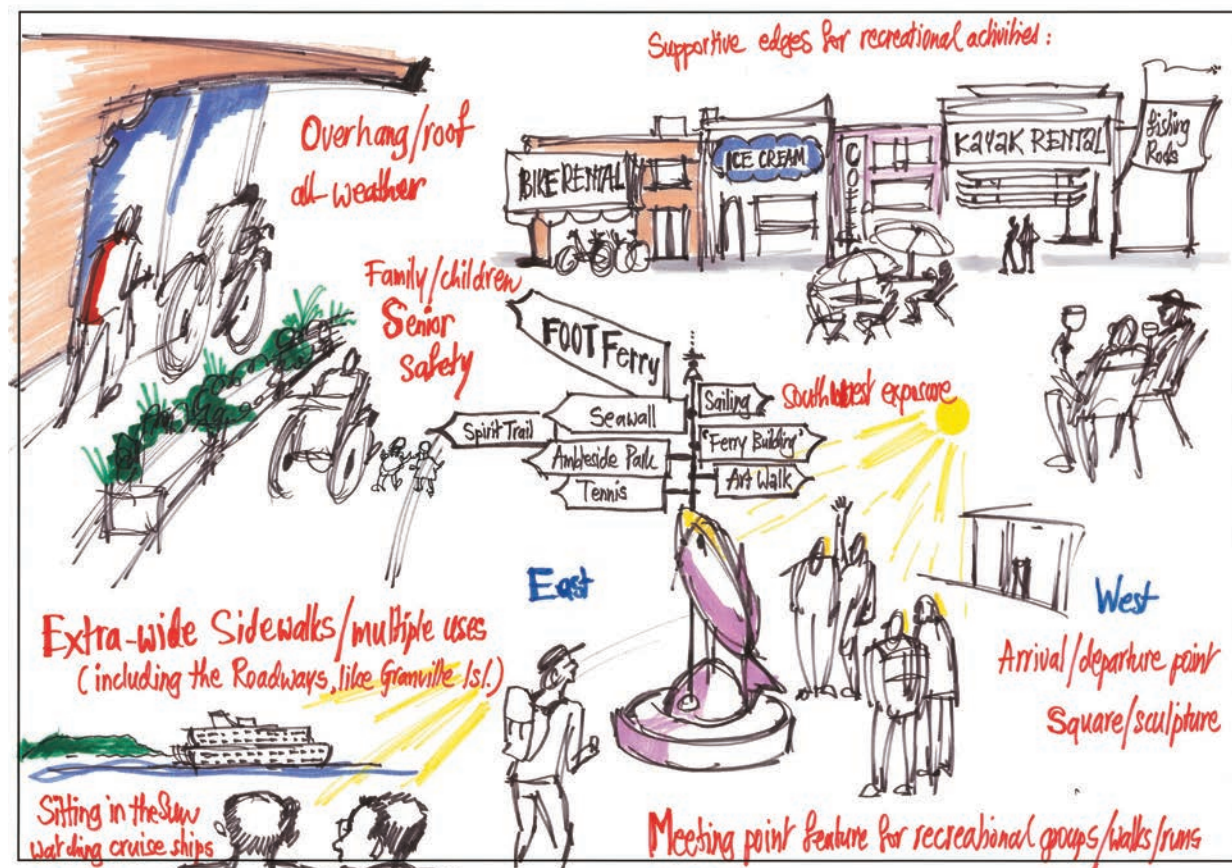 Supportive edges for recreational activities:
Overhang/roof
all-weather
BIKE RENTAL
ICE CREAM
COFFEE
KAYAK RENTAL
fishing
Rods
Family/children
Senior
safety
FOOT Ferry
Seawall
Spirit Trail
Ambleside Park
Tennis
Sailing
'Ferry Building'
Art Walk
Southwest exposure
East
West
Extra-wide Sidewalks/multiple uses
(including the Roadways, like Granville Isl.)
Arrival/departure point
Square/sculpture
Sitting in the Sun
watching cruise ships
Meeting point feature for recreational groups/walks/runs